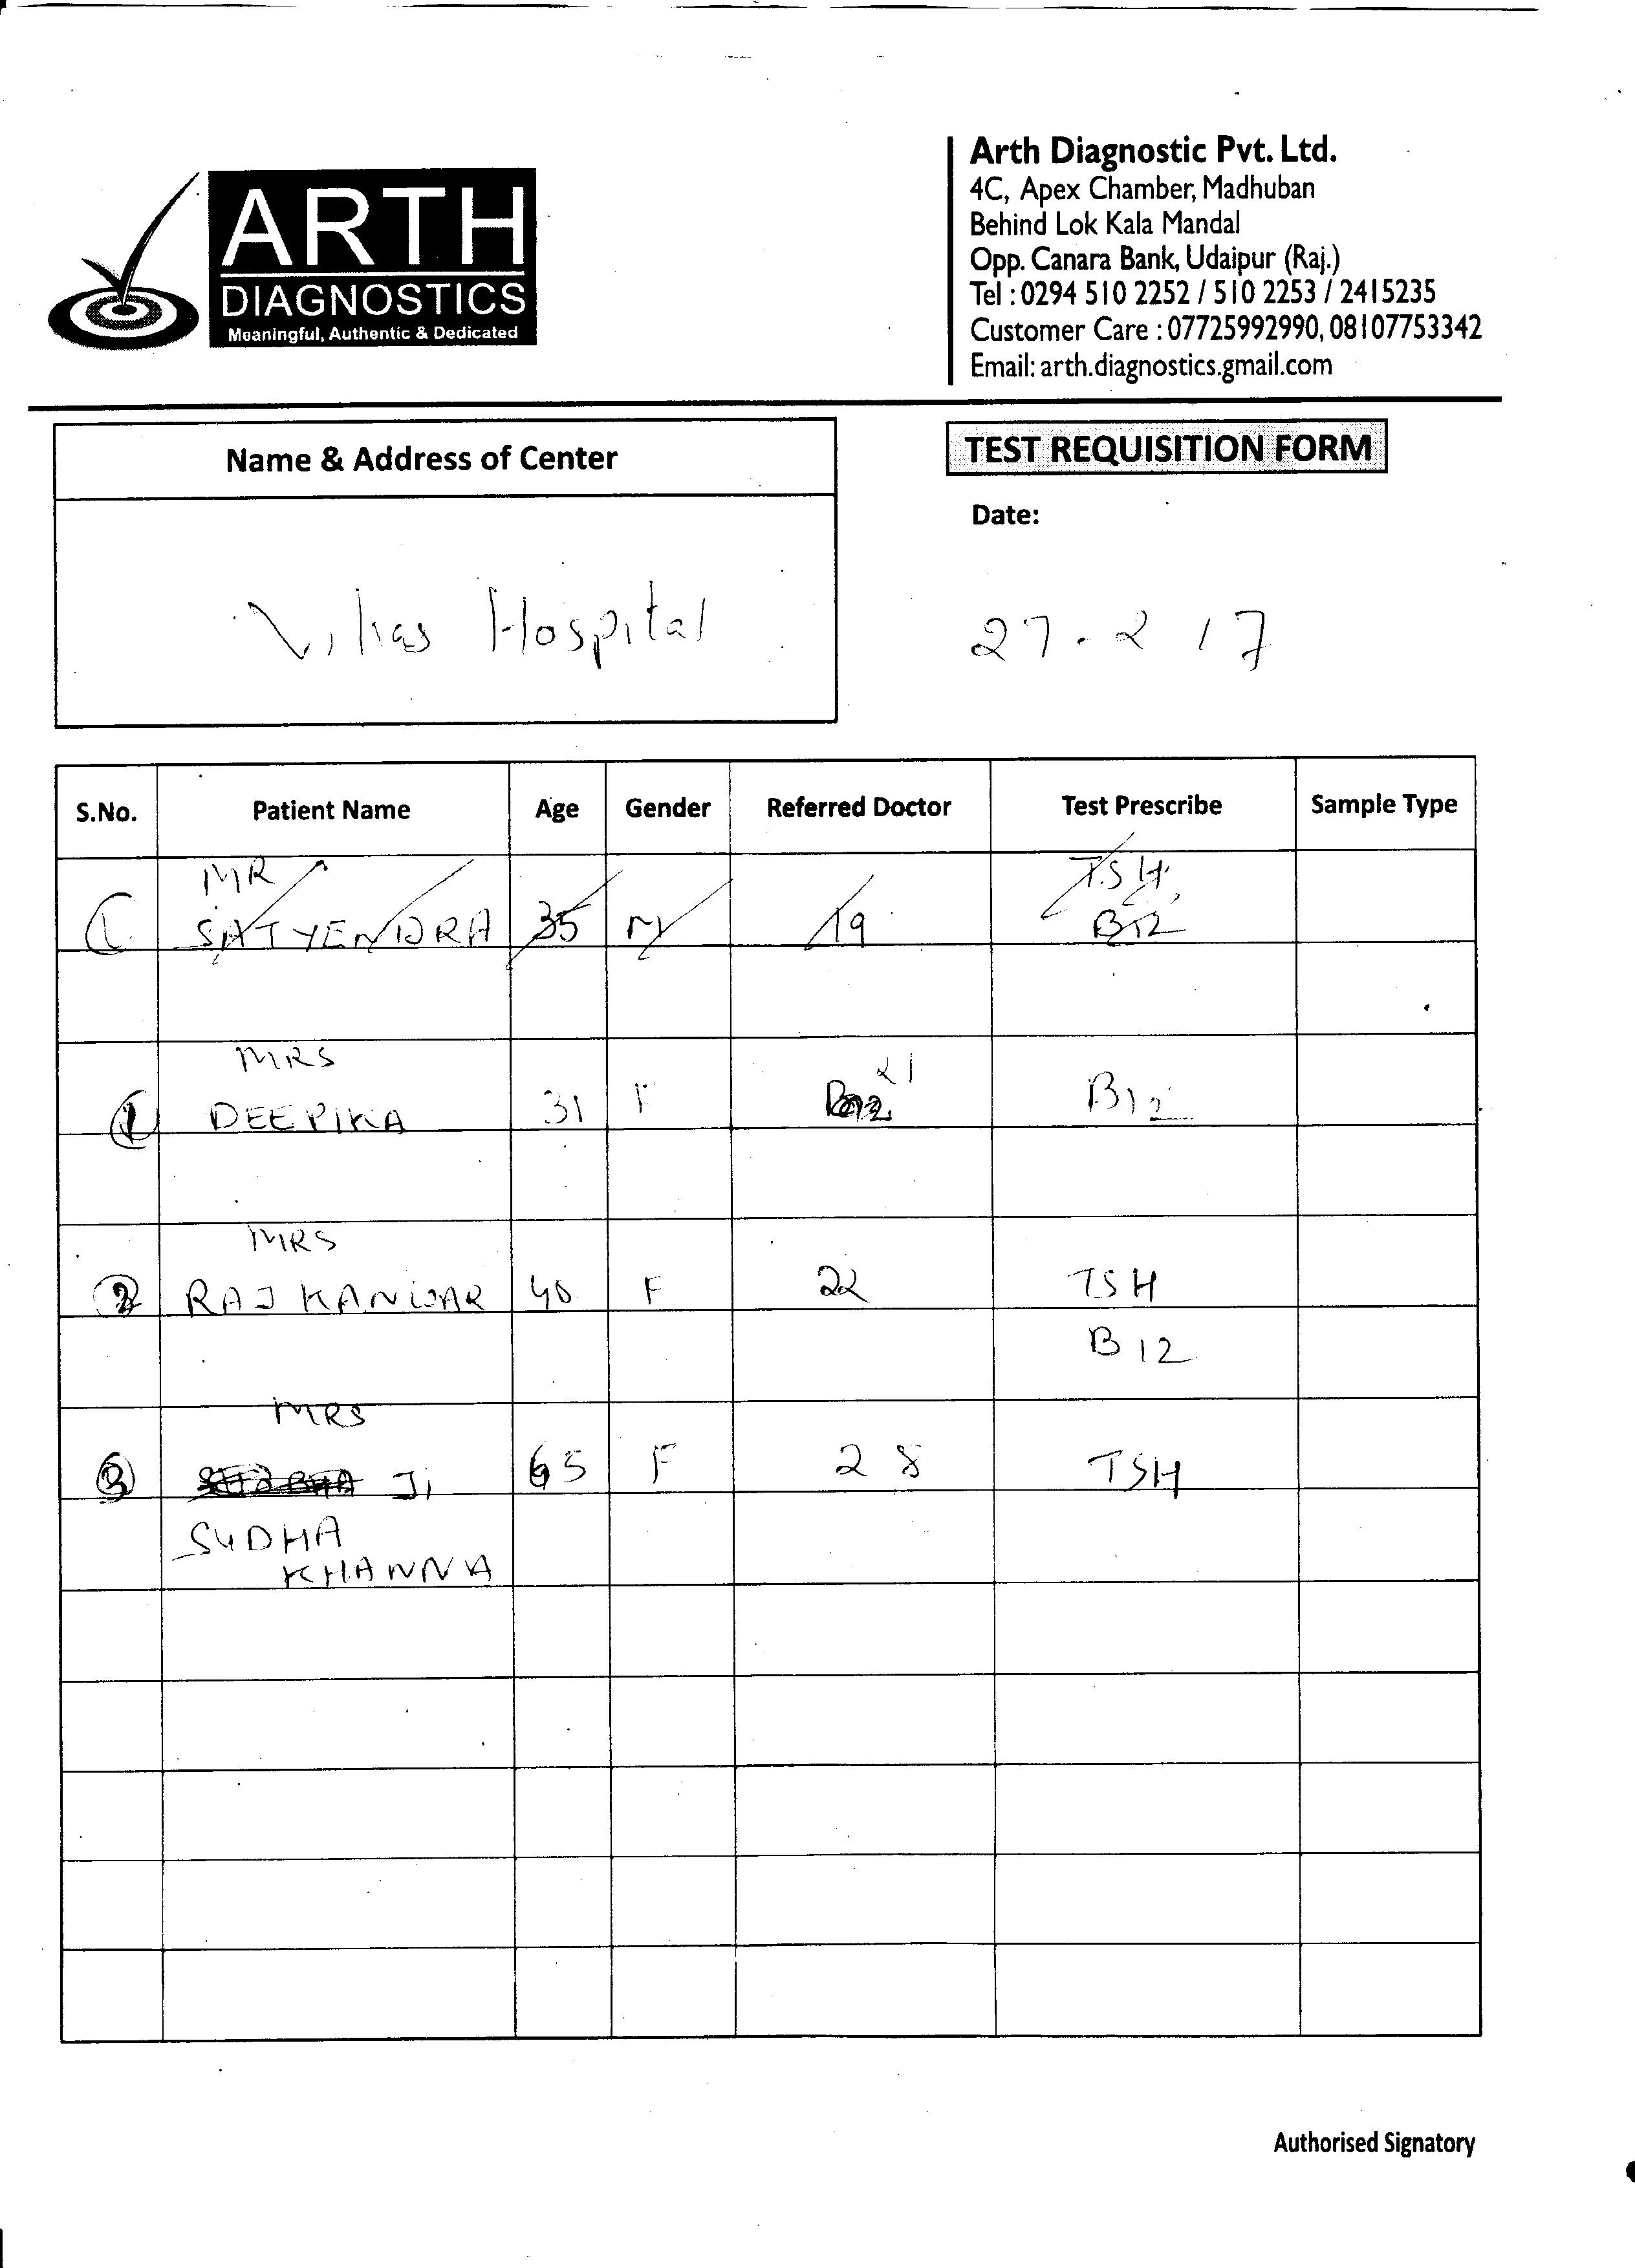 ARTH
DIAGNOSTICS
Meaningful, Authentic & Dedicated
Arth Diagnostic Pvt. Ltd.
4C, Apex Chamber, Madhuban
Behind Lok Kala Mandal
Opp. Canara Bank, Udaipur (Raj.)
Tel : 0294 510 2252 / 510 2253 / 2415235
Customer Care : 07725992990, 08107753342
Email: arth.diagnostics.gmail.com
Name & Address of Center
TEST REQUISITION FORM
Date:
Hospital
27.2 17
S.No. Patient Name Age Gender Referred Doctor Test Prescribe Sample Type
MR TSH,
1 SATYENDRA 35 M 19 B12
MRS 21
1 DEEPIKA 31 F B12
MRS
2 RAJ KANWAR 40 F 22 TSH
B 12
MRS
3 Ji 65 F 28 TSH
SUDHA
KHANNA
Authorised Signatory